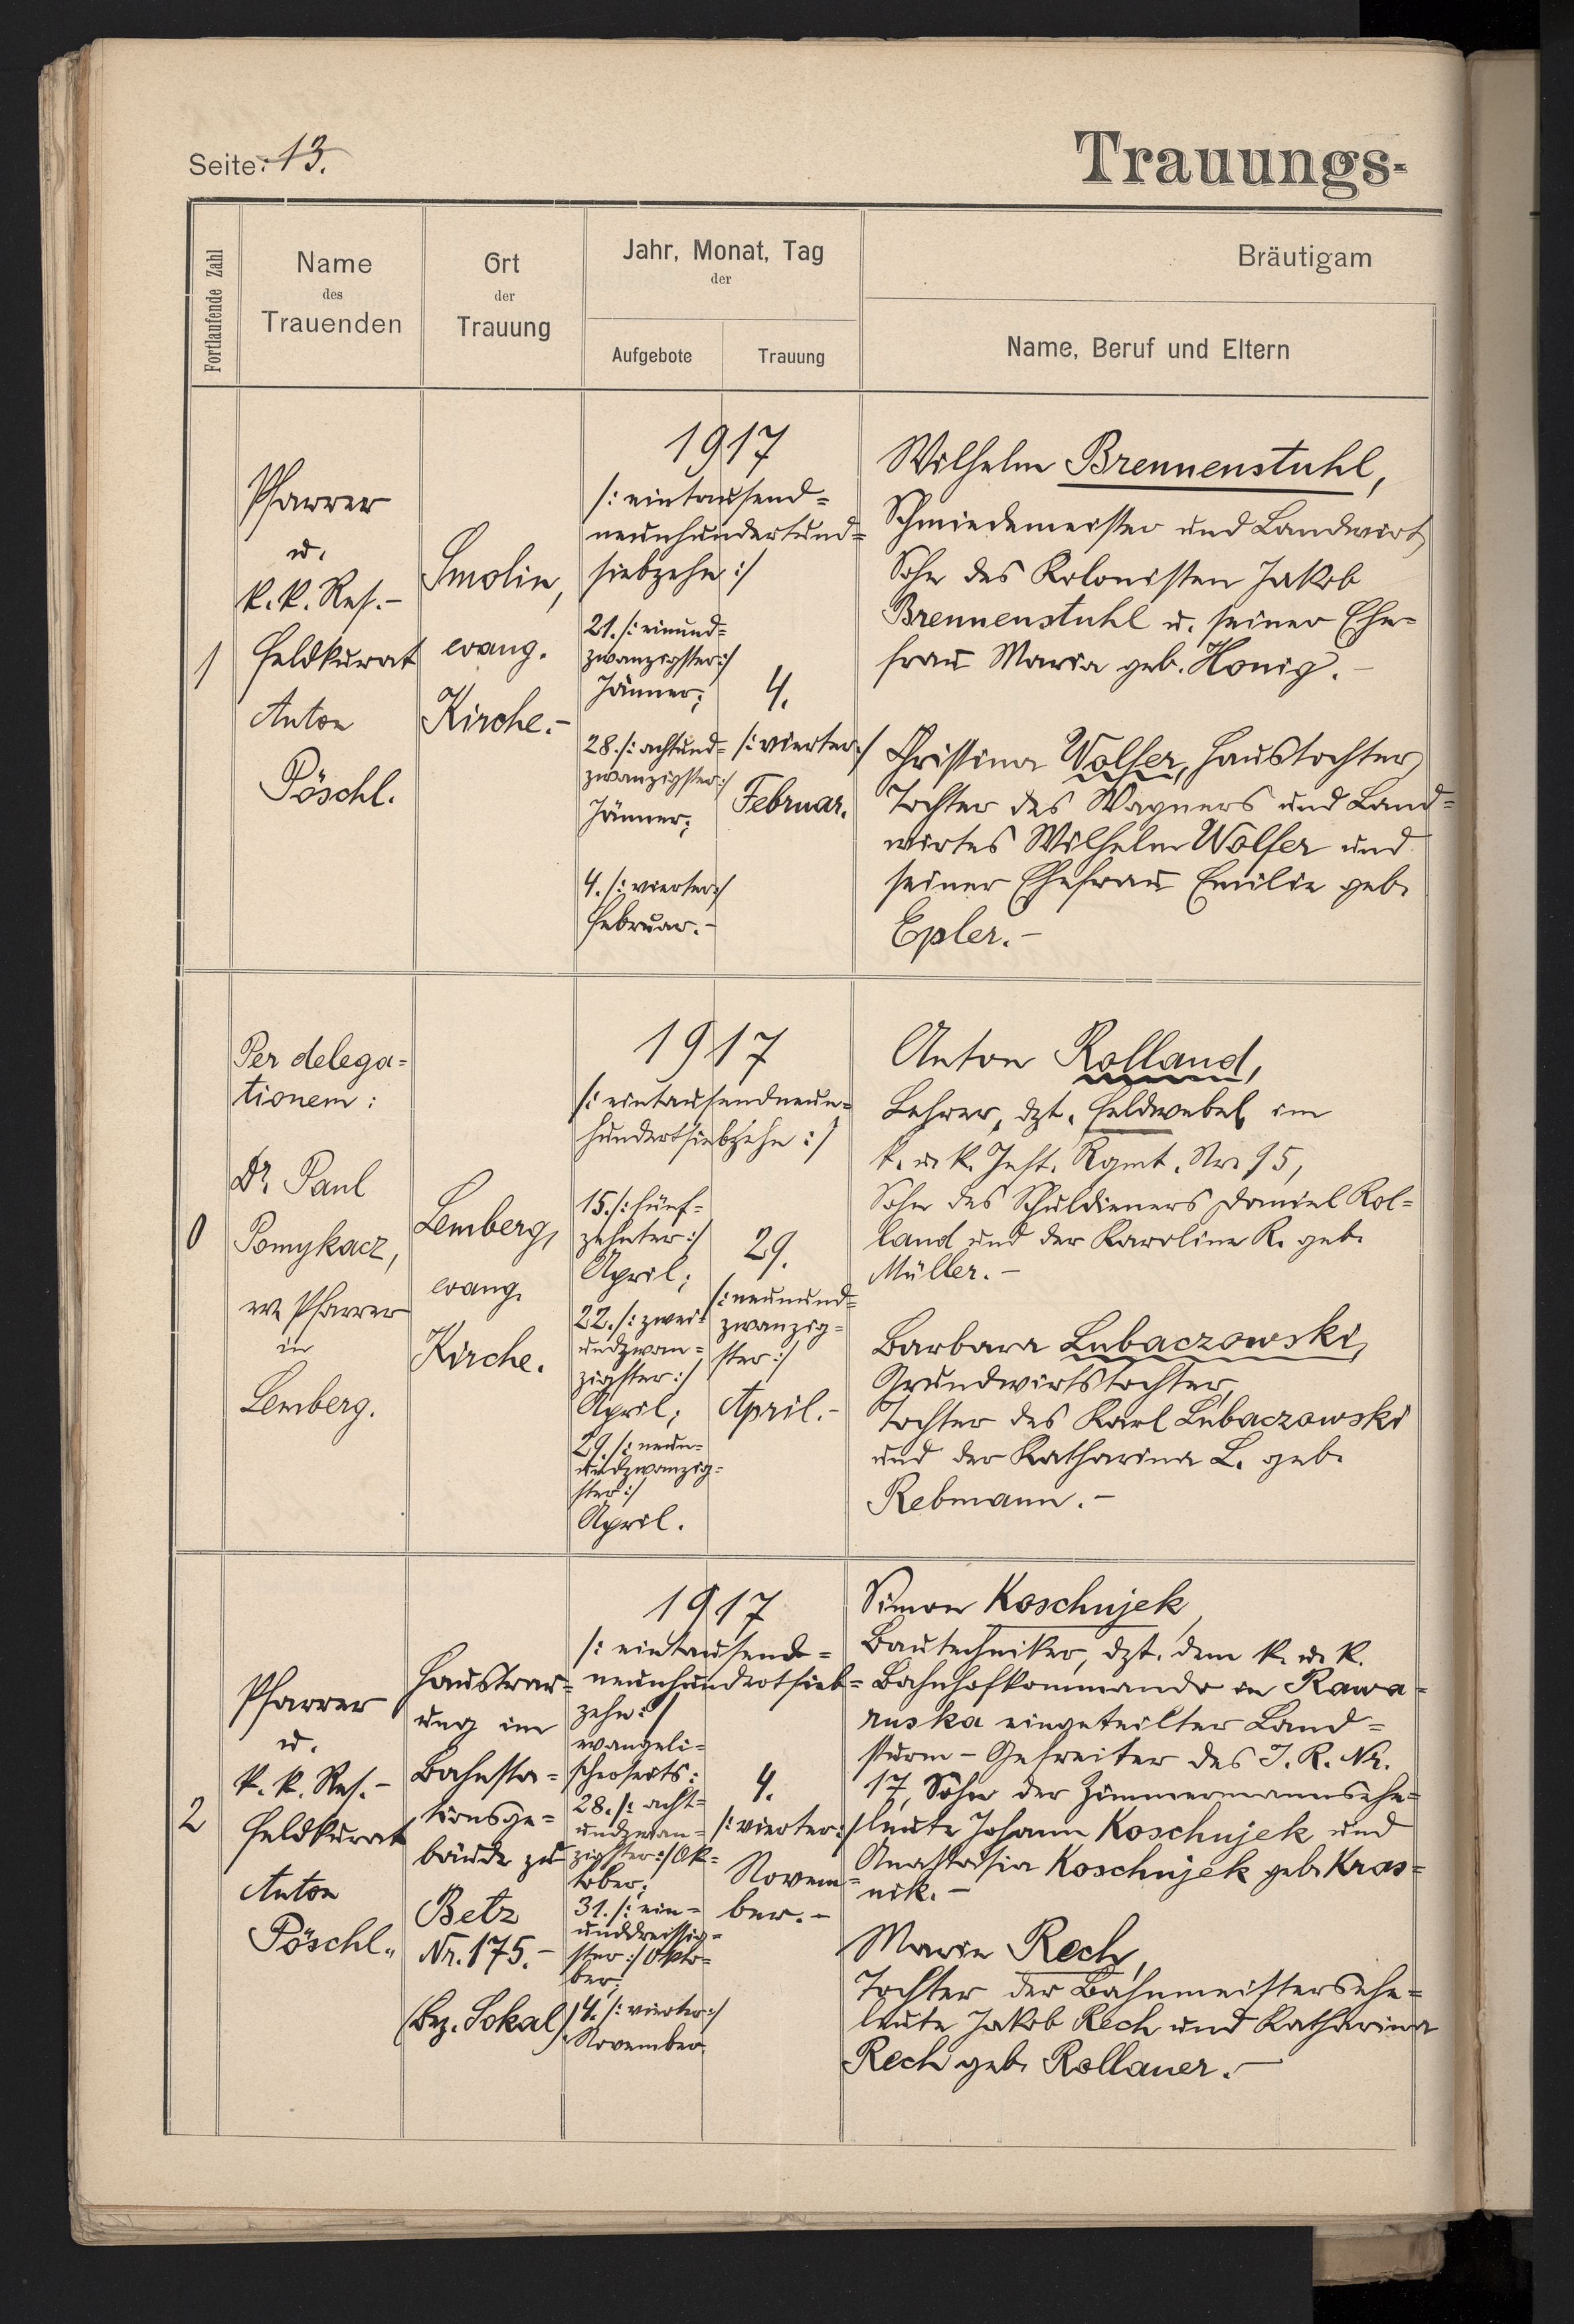 Seite: 13.
Trauungs-
Fortlaufende Zahl
Name
des
Trauenden
Ort
der
Trauung
Jahr, Monat, Tag
der
Aufgebote
Trauung
Bräutigam
Name, Beruf und Eltern
1
Pfarrer
u.
k. k. Res.-
Feldkurat
Anton
Pöschl.
Smolin,
evang.
Kirche.-
1917
/: eintausend=
neunhundertund=
siebzehn :/
21. /: einund=
zwanzigster :/
Jänner;
28. /: achtund=
zwanzigster :/
Jänner;
4. /: vierter :/
Februar.-
4.
/: vierter :/
Februar.
Wilhelm Brennenstuhl,
Schmiedemeister und Landwirt,
Sohn des Kolonisten Jakob
Brennenstuhl u. seiner Ehe=
frau Maria geb. Honig.-
Christina Wolfer, Haustochter,
Tochter des Wagners und Land=
wirtes Wilhelm Wolfer und
seiner Ehefrau Emilie geb.
Epler.-
0
Per delega=
tionem:
Dr. Paul
Pomykacz,
ev. Pfarrer
in
Lemberg.
Lemberg,
evang.
Kirche.
1917
/: eintausendneun=
hundertsiebzehn :/
15. /: fünf=
zehnter :/
April;
22. /: zwei=
undzwan=
zigster :/
April;
29. /: neun=
undzwanzig=
ster :/
April.
29.
/: neunund=
zwanzig=
ster :/
April.-
Anton Rolland,
Lehrer, dzt. Feldwebel im
k. u. k. Inft. Rgmt. Nr. 95,
Sohn des Schuldieners Daniel Rol=
land und der Karoline R. geb.
Müller.-
Barbara Lubaczowski,
Grundwirtstochter,
Tochter des Karl Lubaczowski
und der Katharina L. geb.
Rebmann.-
2
Pfarrer
u.
k. k. Res.-
Feldkurat
Anton
Pöschl.
Haustrau=
ung im
Bahnsta=
tionsge=
bäude zu
Belz
Nr. 175.-
(Bez. Sokal)
1917
/: eintausend=
neunhundertsieb=
zehn :/
evangeli=
scherseits:
28. /: acht=
undzwan=
zigster :/ Ok=
tober;
31. /: ein=
unddreissig=
ster :/ Okto=
ber;
4. /: vierter :/
November.
4.
/: vierter :/
Novem=
ber.-
Simon Koschnjek,
Bautechniker, dzt. dem k. u. k.
Bahnhofkommando in Rawa=
ruska eingeteilter Land=
sturm-Gefreiter des I. R. Nr.
17, Sohn der Zimmermannsehe=
leute Johann Koschnjek und
Anastasia Koschnjek geb. Kras=
nik.-
Marie Rech,
Tochter der Bahnmeistersehe=
leute Jakob Rech und Katharina
Rech geb. Rollauer.-